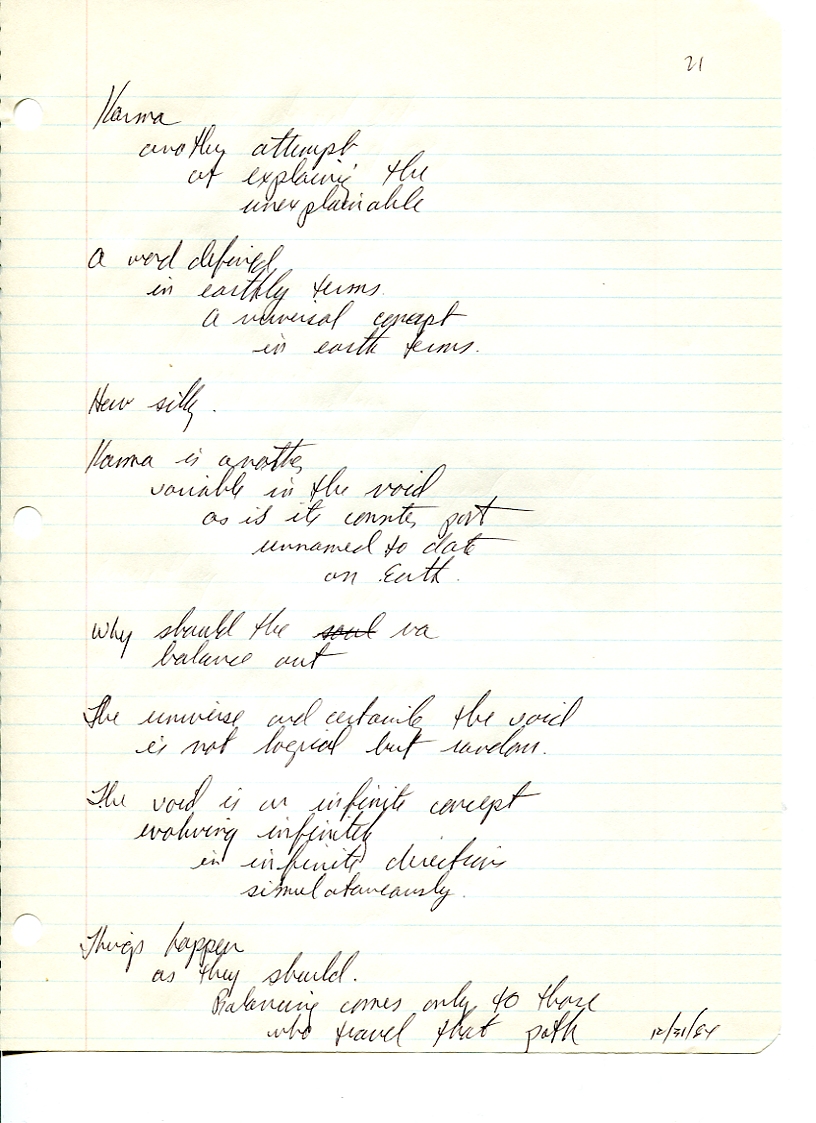 21
Karma
another attempt
at explaining the
unexplainable
A word defined
in earthly terms.
A universal concept
in earth terms.
How silly.
Karma is another
variable in the void
as is its counter part
unnamed to date
on Earth.
Why should the soul va
balance out
The universe and certainly the void
is not logical but random.
The void is an infinite concept
evolving infinitely
in infinite directions
simulataneously.
Things happen
as they should.
Balancing comes only to those
who travel that path
12/31/84